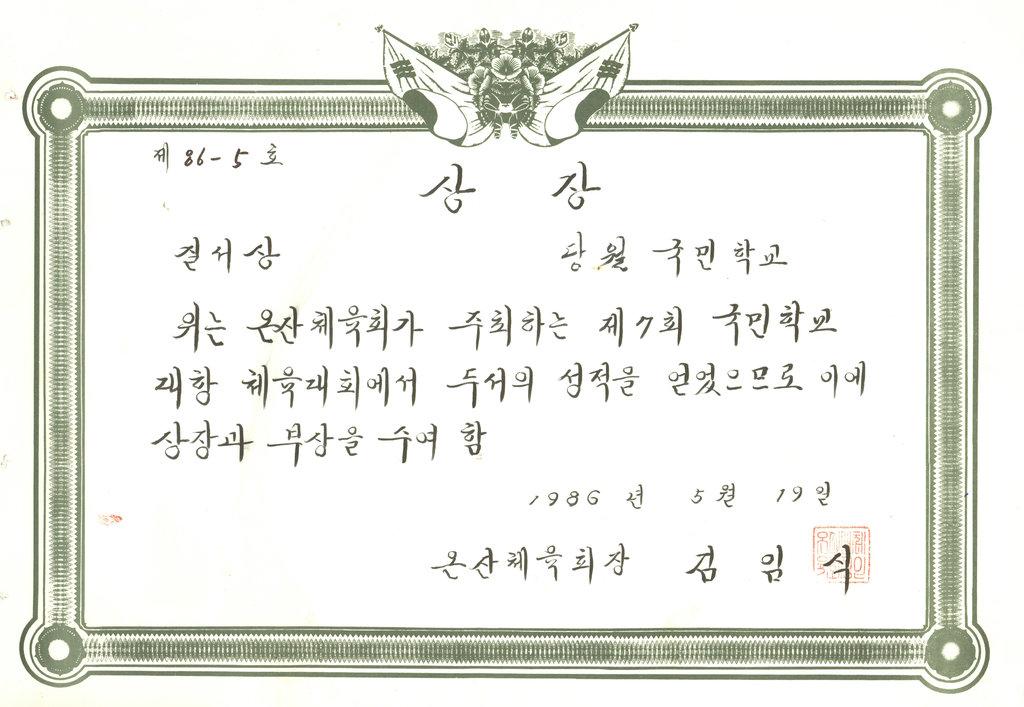 제 86-5 호
상 장
질서상 당월 국민학교
위는 온산체육회가 주최하는 제7회 국민학교
대항 체육대회에서 두서의 성적을 얻었으므로 이에
상장과 부상을 수여 함
1986 년 5월 19일
온산체육회장 김 임 식